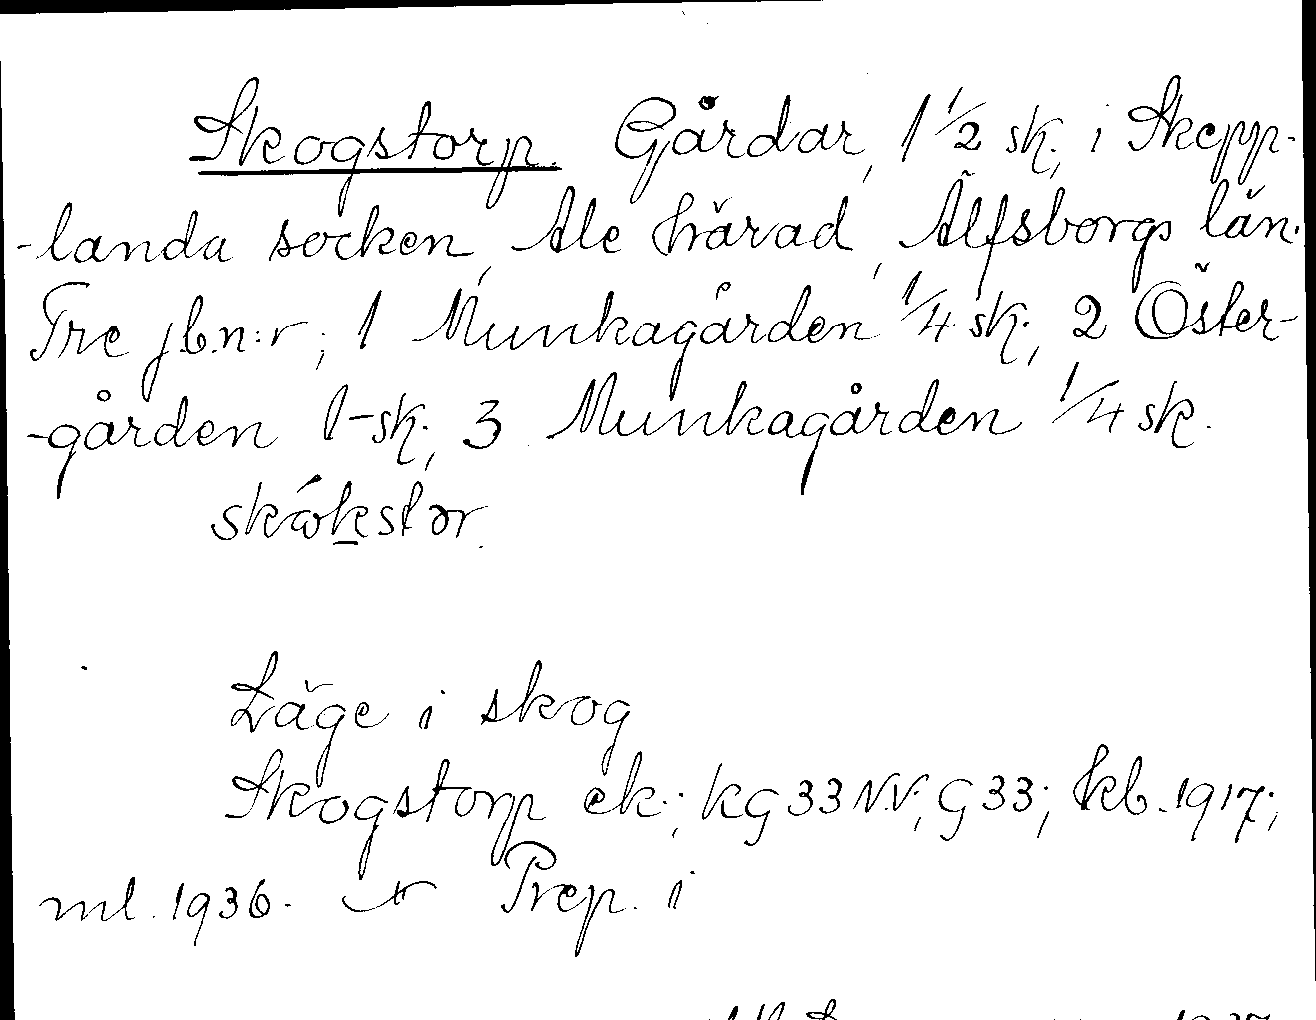 Skogstorp. Gårdar, 1 1/2 sk., i Skepp-
-landa socken, Ale härad, Älfsborgs län.
Tre jb.n:r; 1 Munkagården 1/4 sk., 2 Öster-
-gården 1-sk., 3 Munkagården 1/4 sk.
skókstər.
Läge i skog
Skogstorp ek.; KG33NV; G33; kb. 1917;
ml. 1936. Prep. i